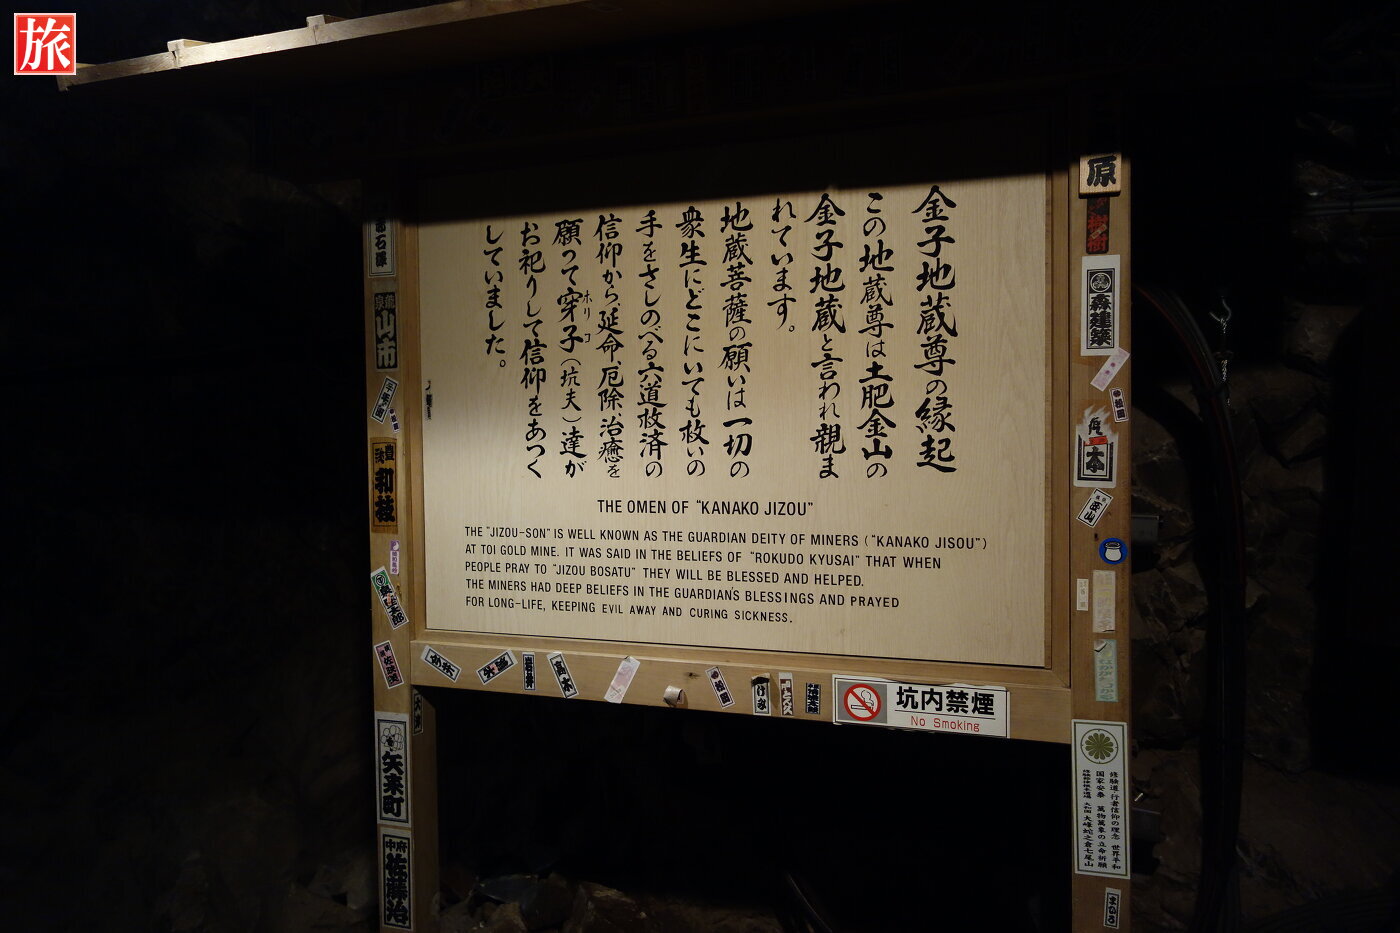 旅
金子地蔵尊の縁起
この地蔵尊は土肥金山の
金子地蔵と言われ親ま
れています。
地蔵菩薩の願いは一切の
衆生にどこにいても救いの
手をさしのべる六道救済の
信仰から、延命、厄除、治癒を
願って穿子(坑夫)達が
ホリコ
お祀りして信仰をあつく
していました。
THE OMEN OF "KANAKO JIZOU"
THE "JIZOU-SON" IS WELL KNOWN AS THE GUARDIAN DEITY OF MINERS ("KANAKO JISOU")
AT TOI GOLD MINE. IT WAS SAID IN THE BELIEFS OF "ROKUDO KYUSAI" THAT WHEN
PEOPLE PRAY TO "JIZOU BOSATU" THEY WILL BE BLESSED AND HELPED.
THE MINERS HAD DEEP BELIEFS IN THE GUARDIAN'S BLESSINGS AND PRAYED
FOR LONG-LIFE, KEEPING EVIL AWAY AND CURING SICKNESS.
坑内禁煙
No Smoking
原
森建築
山市
和枝
矢来町
中府
佐藤治
高木
けみ
修験道 行者信仰の理念 世界平和
国家安泰 萬物萬象の立命祈願
まひろ